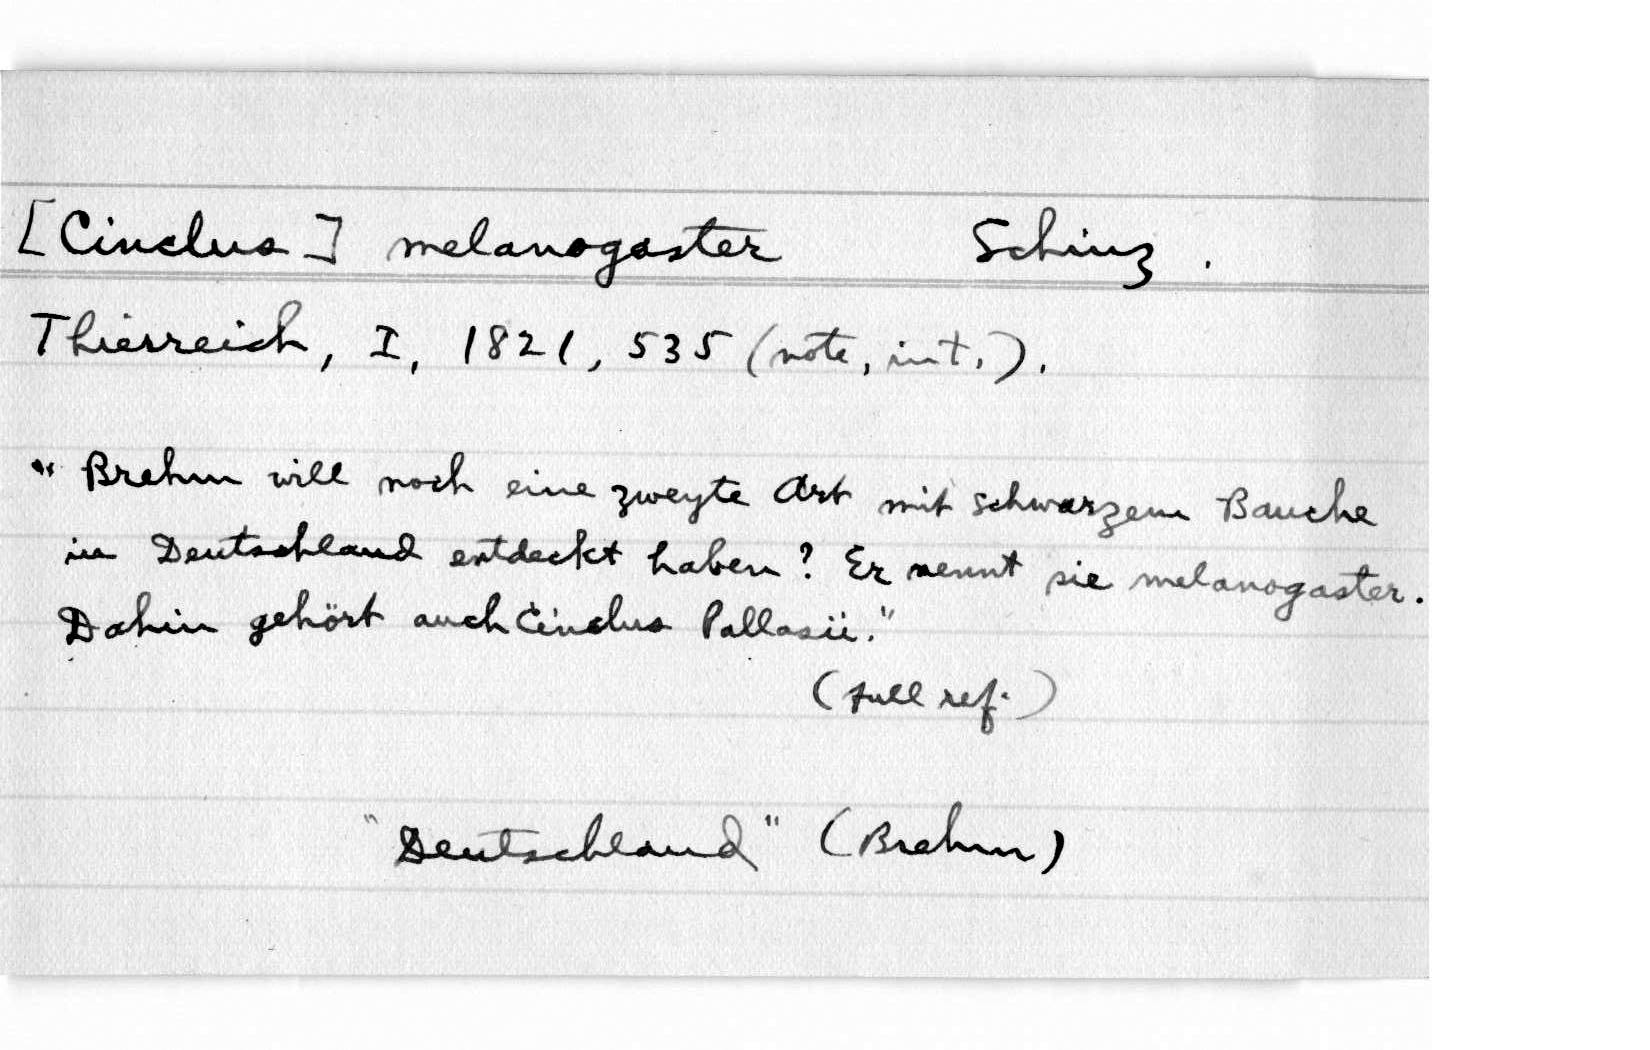 [Cinclus] melanogaster Schinz.
Thierreich, I, 1821, 535 (note, int.).
"Brehm will noch eine zweyte Art mit schwarzem Bauche
in Deutschland entdeckt haben? Er nennt sie melanogaster.
Dahin gehört auch Cinclus Pallasii."
(full ref.)
"Deutschland" (Brehm)